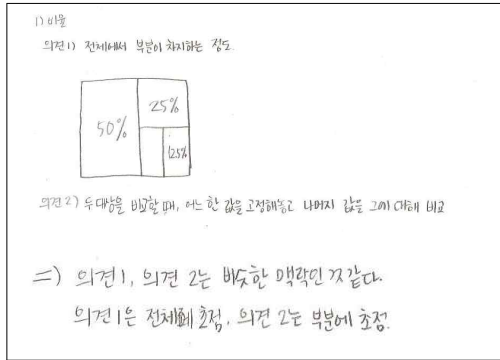 1) 비율
의견1) 전체에서 부분이 차지하는 정도.
50%
25%
12.5%
의견2) 두 대상을 비교할 때, 어느 한 값을 고정해놓고 나머지 값을 그에 대해 비교
=> 의견1, 의견 2는 비슷한 맥락인 것 같다.
의견1은 전체에 초점, 의견 2는 부분에 초점.